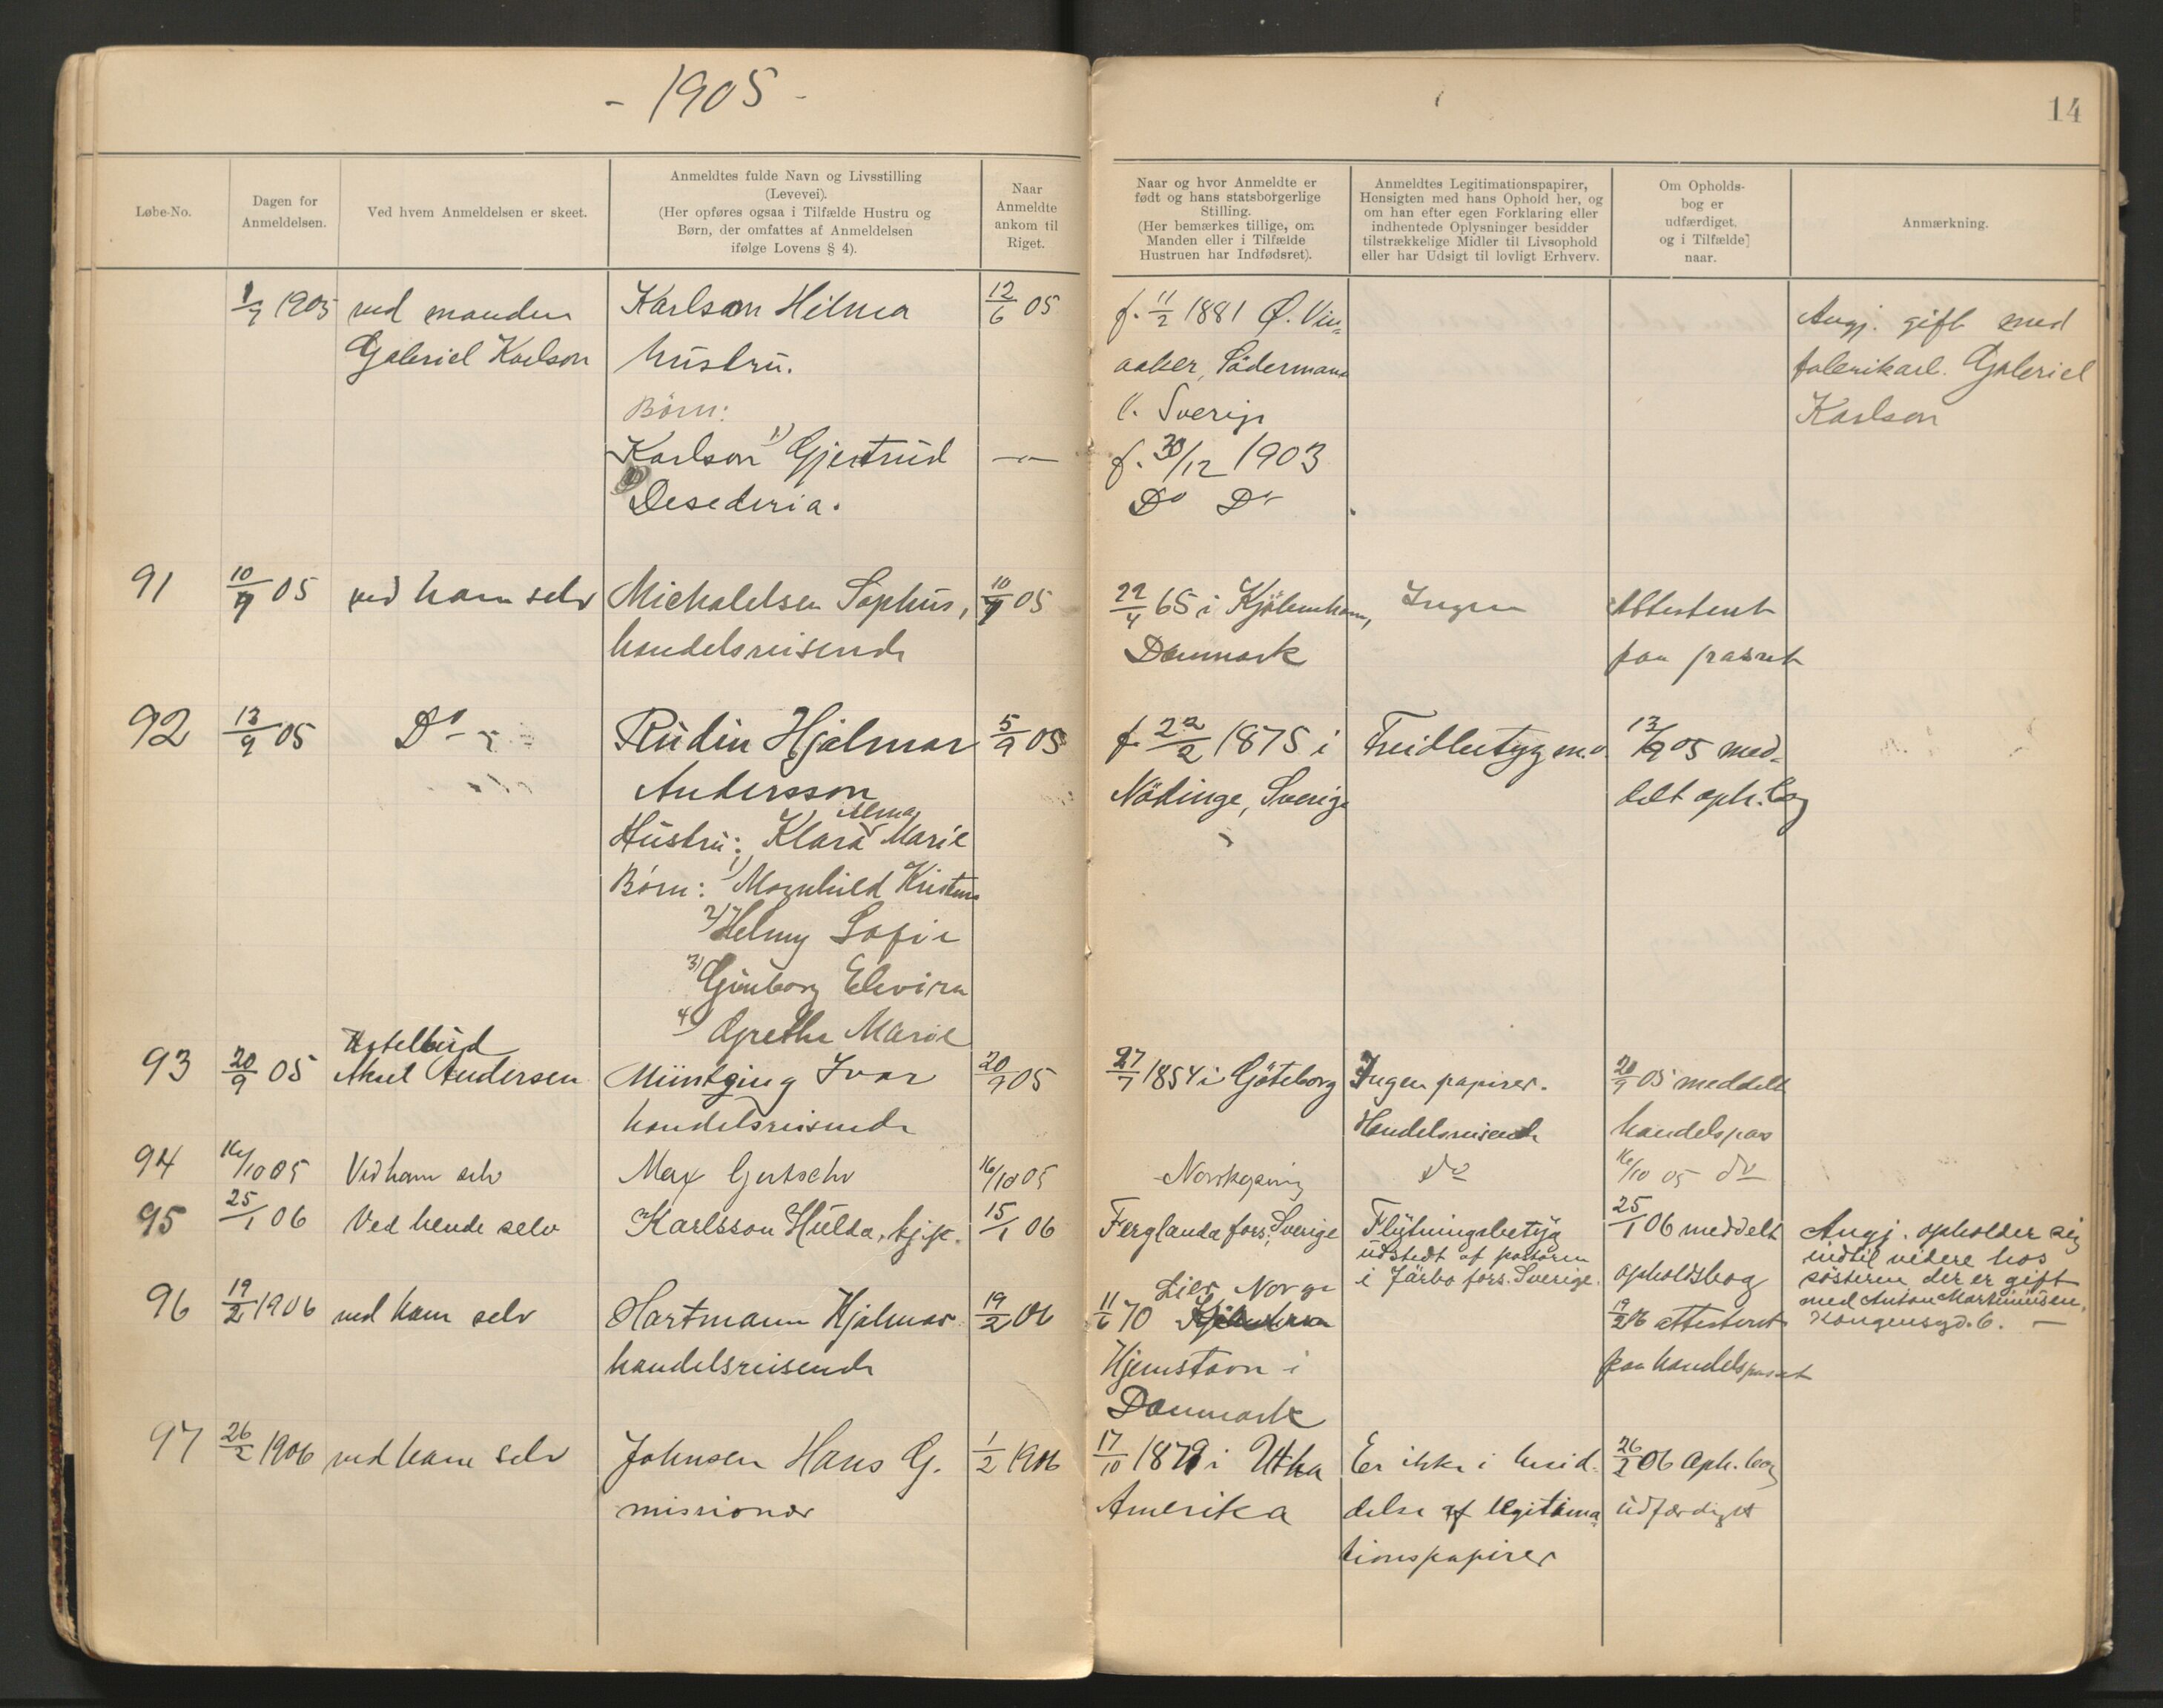 - 1905 -
14
Løbe-No.
Dagen for
Anmeldelsen.
Ved hvem Anmeldelsen er skeet.
Anmeldtes fulde Navn og Livsstilling
(Levevei).
(Her opføres ogsaa i Tilfælde Hustru og
Børn, der omfattes af Anmeldelsen
ifølge Lovens § 4).
Naar
Anmeldte
ankom til
Riget.
Naar og hvor Anmeldte er
født og hans statsborgerlige
Stilling.
(Her bemærkes tillige, om
Manden eller i Tilfælde
Hustruen har Indfødsret).
Anmeldtes Legitimationspapirer,
Hensigten med hans Ophold her, og
om han efter egen Forklaring eller
indhentede Oplysninger besidder
tilstrækkelige Midler til Livsophold
eller har Udsigt til lovligt Erhverv.
Om Opholds-
bog er
udfærdiget,
og i Tilfælde
naar.
Anmærkning.
1905
ved manden
Gabriel Karlson
Karlson Hilma
hustru.
Børn:
Karlson 1) Gjertrud
Desederia.
12/6 05
f. 11/2 1881 Ø. Vin-
aaker, Södermanl
l. Sverige
f. 30/12 1903
Do Do
Angj. gift med
fabrikarb. Gabriel
Karlson
91
10/9 05
ved ham selv
Michalelsen Sophus,
handelsreisende
10/9 05
22/4 65 i Kjøbenhavn,
Danmark
Ingen
Attestert
paa passet
92
13/9 05
Do
Rudin Hjalmar
Andersson
Hustru: Klara Alma Marie
Børn: 1) Magnhild Kristina
2) Helmy Sofie
3) Gunborg Elvira
4) Grethe Marie
5/9 05
f. 22/2 1875 i
Nödinge, Sverige
Freidbetyg m.v.
13/9 05 med-
delt oph.bog
93
20/9 05
Hotelbud
Aksel Andersen
Müntzing Ivar
handelsreisende
20/9 05
27/7 1854 i Göteborg
Ingen papirer.
Handelsreisende
20/9 05 meddelt
handelspas
94
16/10 05
Ved ham selv
Max
16/10 05
Norrkøping
do
16/10 05 do
95
25/1 06
Ved hende selv
Karlsson Hulda, tj.p.
15/1 06
Ferglanda fors. Sverige
Flytningsbetyg
udstedt af pastoren
i Järbo fors. Sverige.
25/1 06 meddelt
opholdsbog
Angj. opholder sig
indtil videre hos
søsteren der er gift
med Anton Martiniusen,
Kongensgd. 6. —
96
19/2 1906
ved ham selv
Hartmann Hjalmar
handelsreisende
19/2 06
11/6 70 Lier Norge
Hjemstavn i
Danmark
19/2 06 attesteret
paa handelspasset
97
26/2 1906
ved ham selv
Johnsen Hans G.
missionær
1/2 1906
17/10 1879 i Utha
Amerika
Er ikke i besid-
delse af legitima-
tionspapirer
26/2 06 oph.bog
udfærdiget